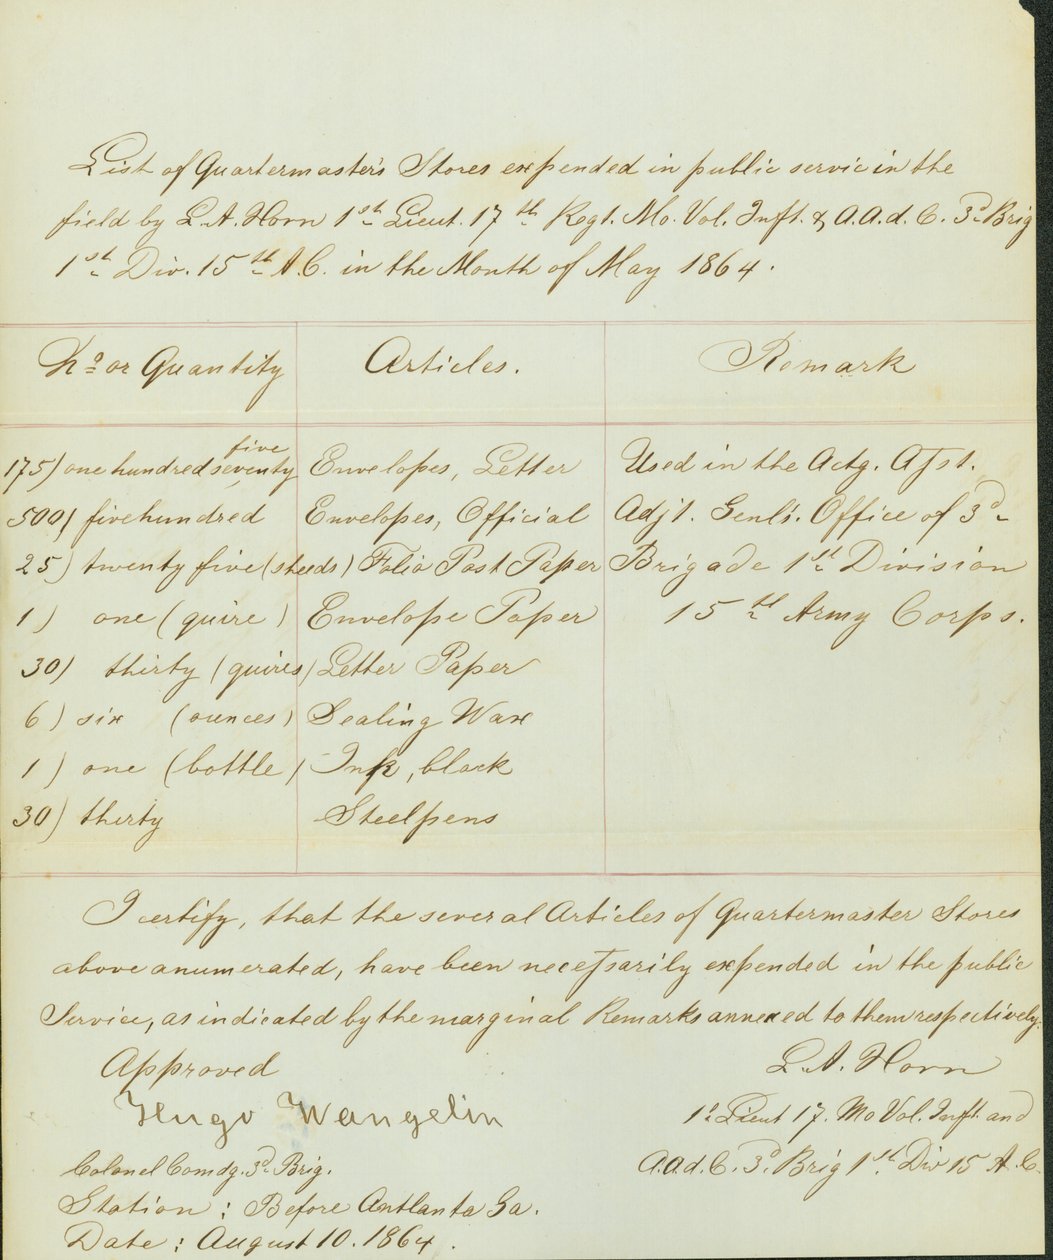 List of Quartermaster's Stores expended in public service in the
field by L. A. Horn 1st Lieut. 17th Regt. Mo. Vol. Inft. & A. A. d. C. 3d Brig
1st Div. 15th A. C. in the Month of May 1864.
No or Quantity Articles. Remark
five
175) one hundred seventy Envelopes, Letter Used in the Actg. Asst.
500) five hundred Envelopes, Official Adjt. Genl's. Office of 3d
25) twenty five (sheeds) Folio Post Paper Brigade 1st Division
1) one (quire) Envelope Paper 15th Army Corps.
30) thirty (quires) Letter Paper
6) six (ounces) Sealing Wax
1) one (bottle) Ink, black
30) thirty Steelpens
I certify, that the several Articles of Quartermaster Stores
above anumerated, have been necessarily expended in the public
Service, as indicated by the marginal Remarks annexed to them respectively.
Approved L. A. Horn
Hugo Wangelin 1st Lieut 17. Mo Vol. Inft. and
Colonel Comdg. 3d Brig. A. a. d. C. 3d Brig 1st Div 15 A. C.
Station : Before Antlanta Ga.
Date : August 10. 1864.